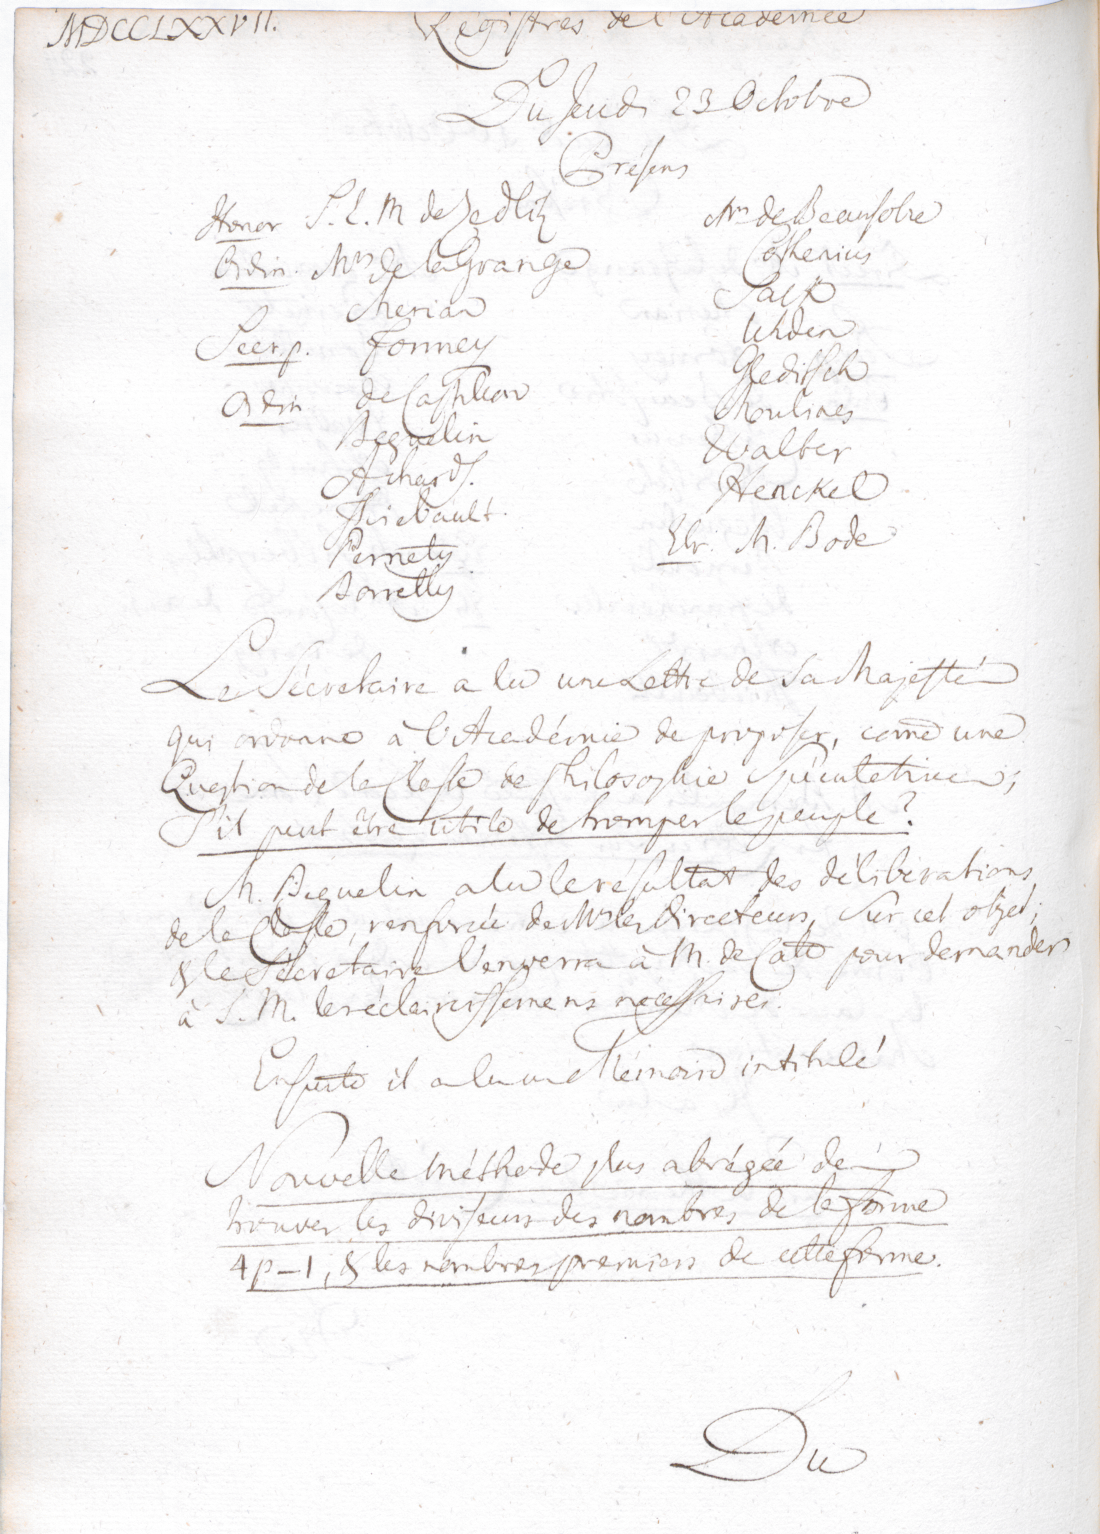 MDCCLXXVII.
Registres de l'Academie
Du Jeudi 23 Octobre
Présens
Honor S. E. M de Zedlitz
Ordin. Mrs de la Grange
Merian
Secr. p. Formey
Ordin de Castillon
Beguelin
Achard.
Thiebault.
Pernety
Borrelly
Mrs de Beausobre
Cothenius
Sack
Uhden
Gleditsch
Moulines
Walter
Henckel
Etr. M. Bode
Le Sécretaire a lu une Lettre de Sa Majesté
qui ordonne à l'Académie de proposer, comme une
Question de la Classe de Philosophie Spéculative;
S'il peut être utile de tromper le peuple?
M. Beguelin a lu le résultat des délibérations
de la Classe, renforcée de Mrs les Directeurs, sur cet objet;
& le Sécretaire l'enverra à M. de Catt pour demander
à S. M. les éclaircissemens necessaires.
Ensuite il a lu un Mémoire intitulé
Nouvelle méthode plus abrégée de
trouver les diviseurs des nombres de la forme
4p-1, & les nombres premiers de cette forme.
Du